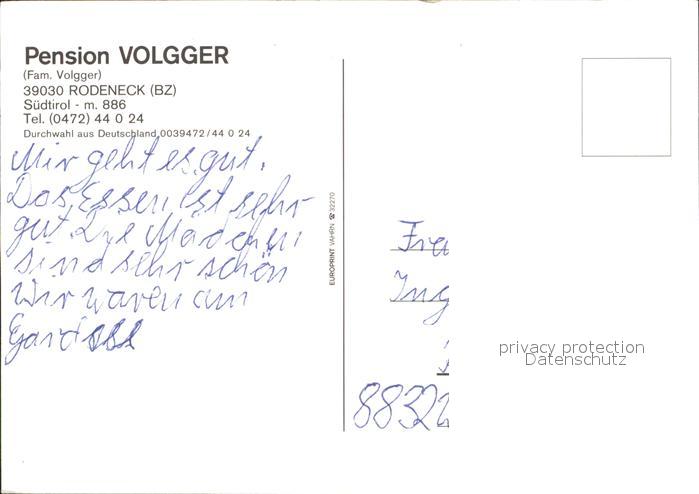 Pension VOLGGER
(Fam. Volgger)
39030 RODENECK (BZ)
Südtirol - m. 886
Tel. (0472) 44 0 24
Durchwahl aus Deutschland 0039472/44 0 24
Mir geht es gut.
Das Essen ist sehr
gut. Die Mädchen
sind sehr schön
Wir waren am
EUROPRINT VAHRN ☎ 32270
Fra
Ing
8832
privacy protection
Datenschutz